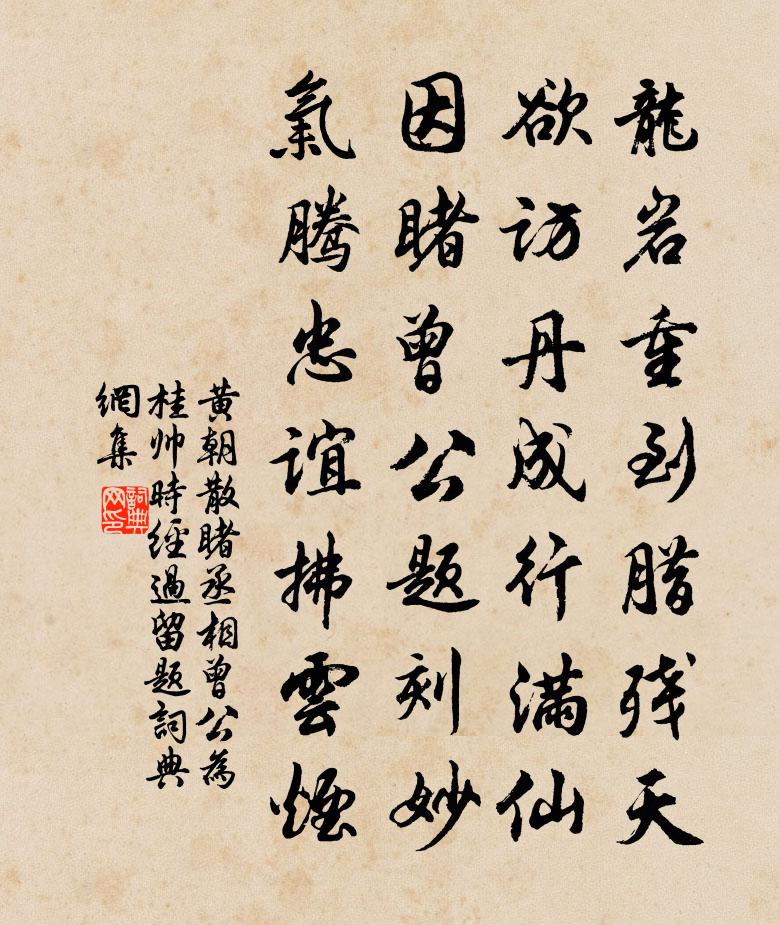 龍岩重到腊残天
欲訪丹成行满仙
因睹曾公题刻妙
氣腾忠誼拂雲煙
黄朝散睹丞相曾公為
桂帅時經過留题詞典
網集
詞典网印